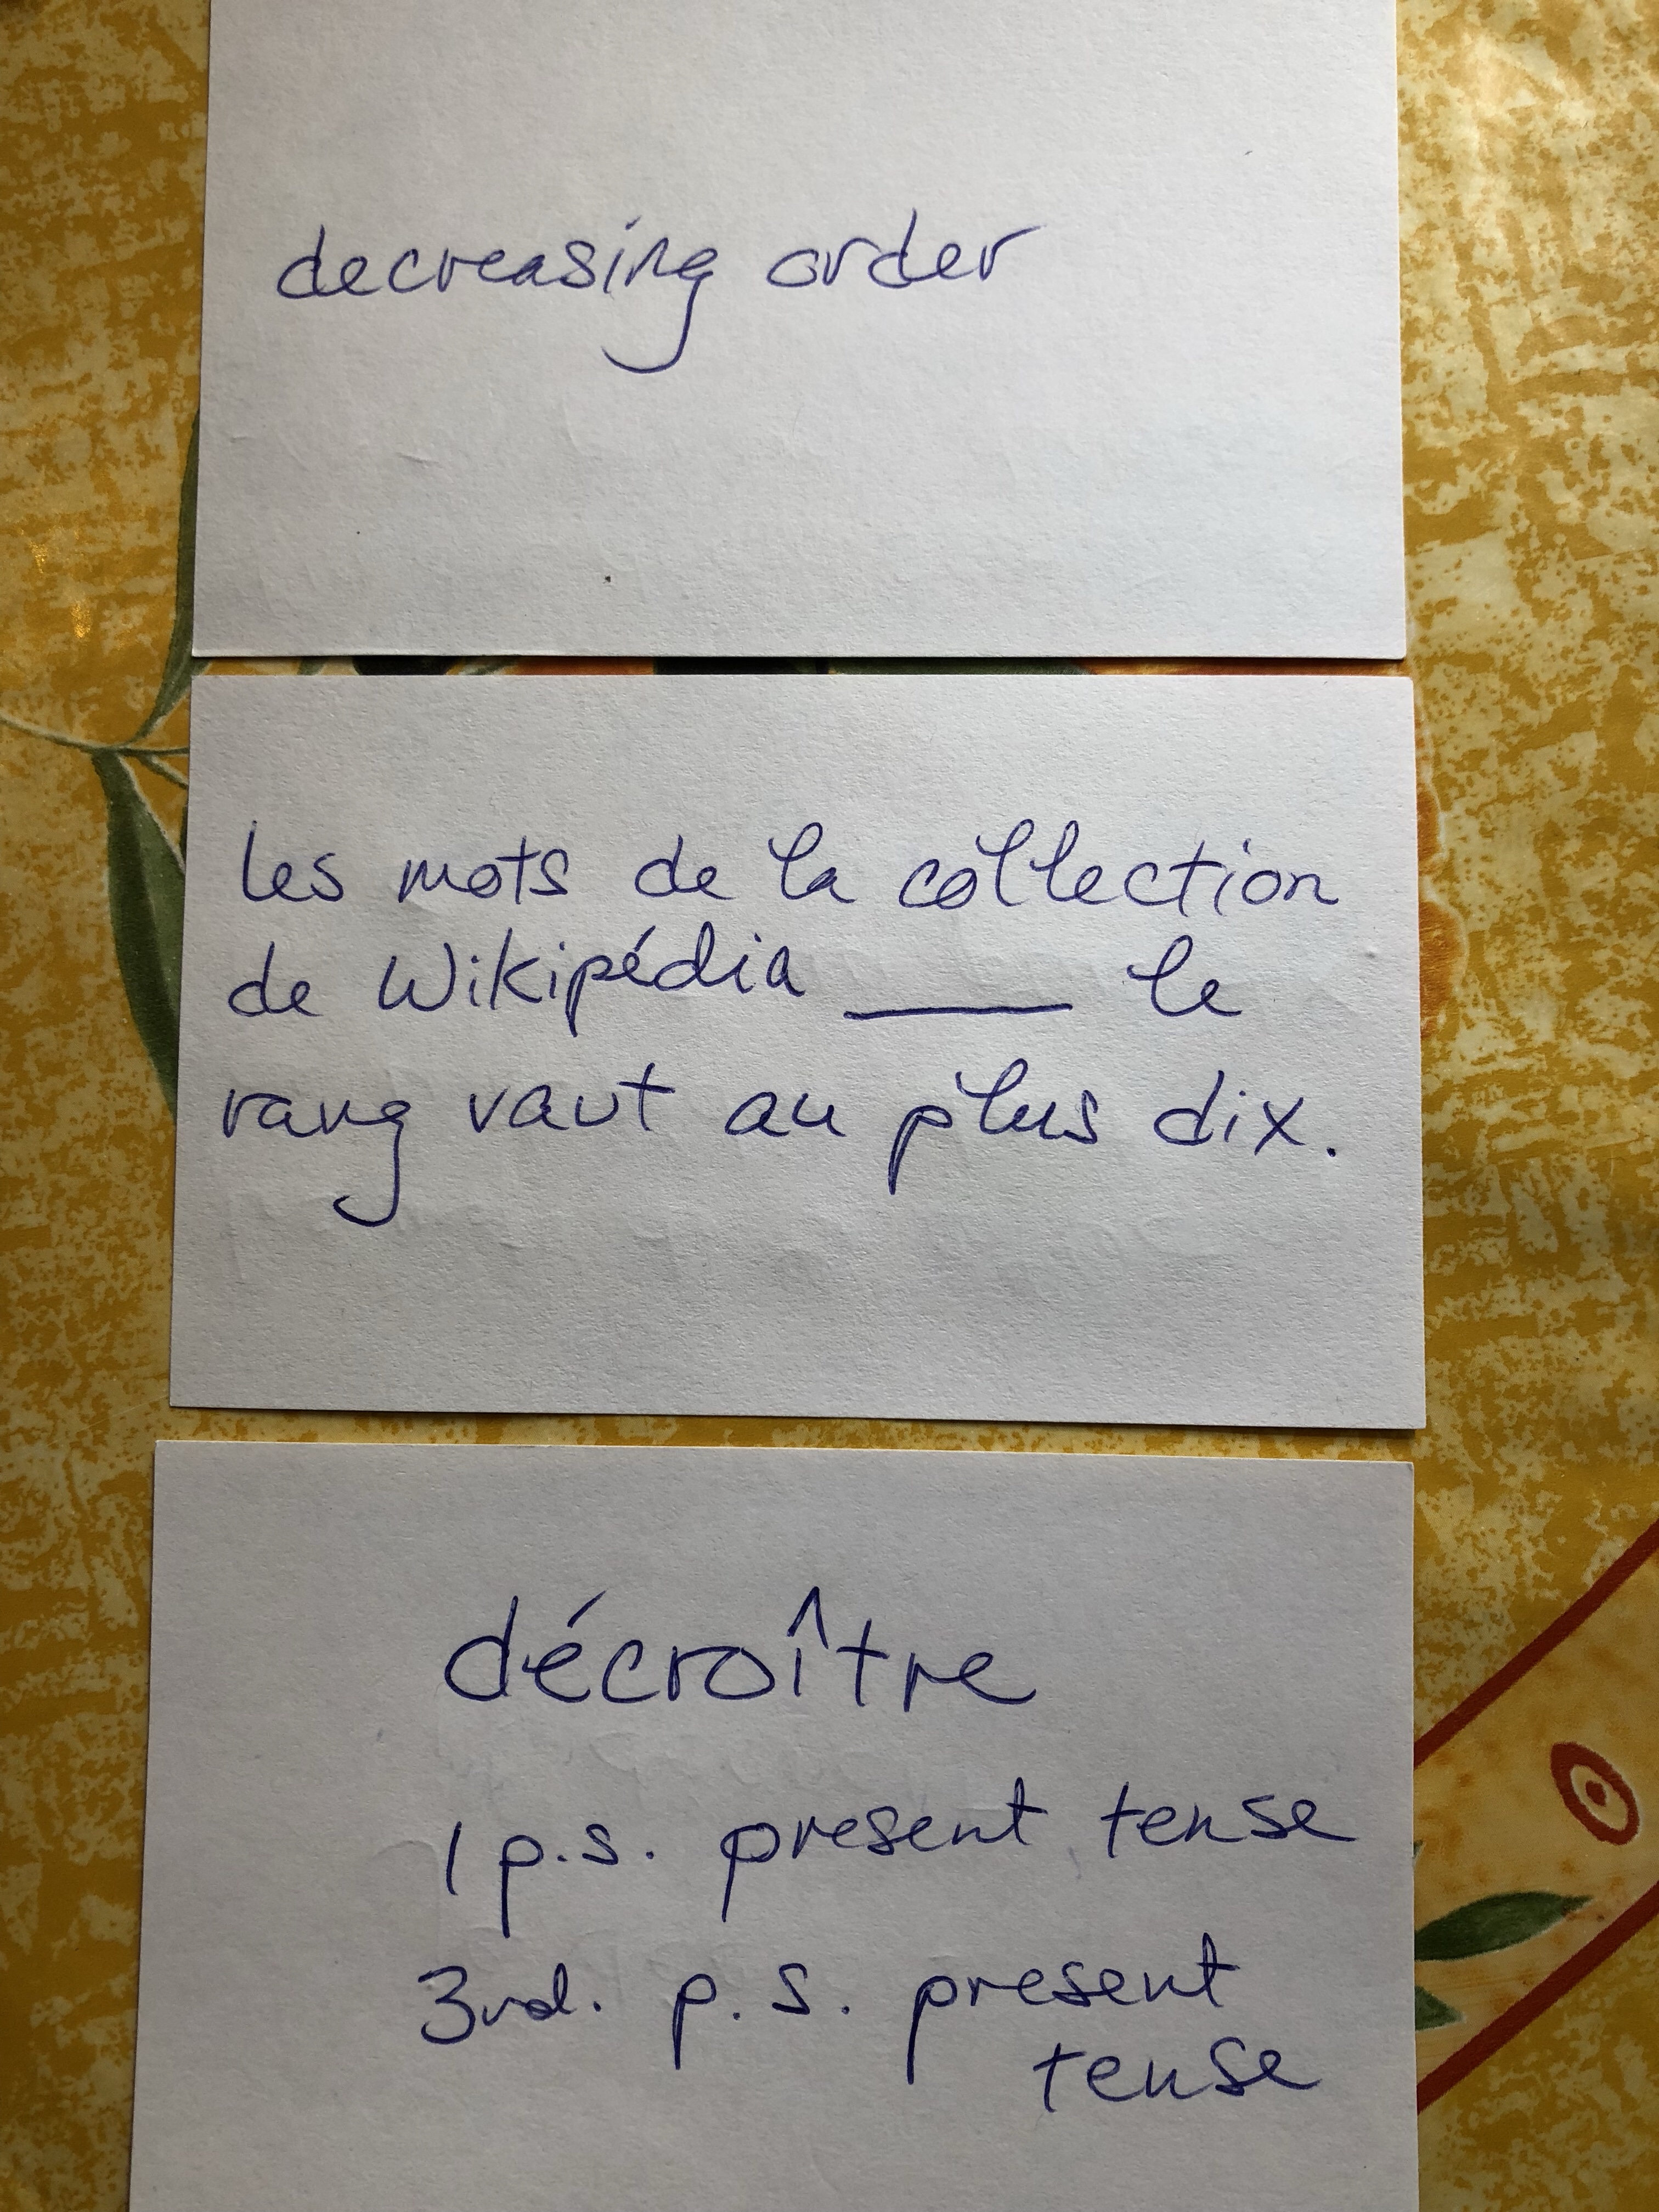 decreasing order
les mots de la collection
de Wikipédia ____ le
rang vaut au plus dix.
décroître
1 p.s. present tense
3rd. p.s. present
tense